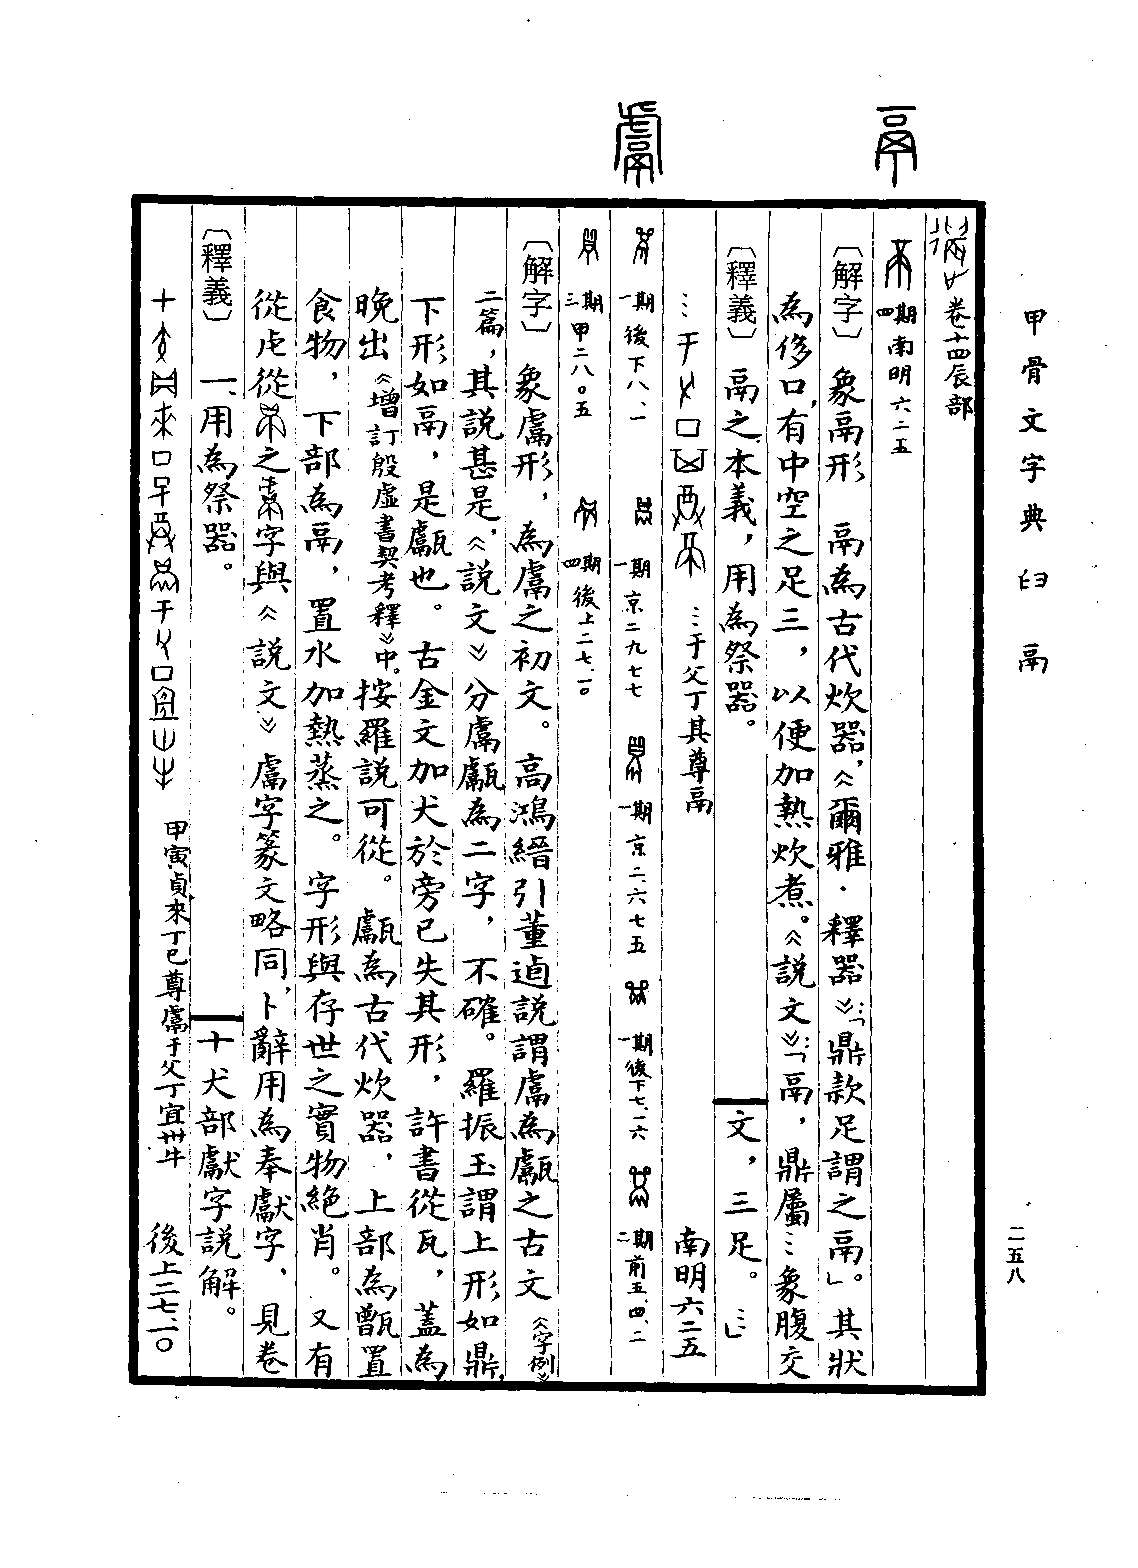 甲骨文字典 臼 鬲
二五八
鬲
鬳
卷十四辰部
四期 南明六二五
〔解字〕象鬲形 鬲為古代炊器，《爾雅．釋器》：「鼎款足謂之鬲。」其狀
為侈口，有中空之足三，以便加熱炊煮。《說文》：「鬲，鼎屬…象腹交
文，三足。…」
〔釋義〕鬲之本義，用為祭器。
…于父丁其尊鬲 南明六二五
一期 後下八．一 一期 京二九七七 一期 京二．六七五 一期 後下七．一六 二期 前五．四．二
三期 甲二八〇五 四期 後上二七．一〇
〔解字〕象鬳形，為鬳之初文。高鴻縉引董逌說謂鬳為甗之古文《字例》
二篇，其說甚是，《說文》分鬳甗為二字，不確。羅振玉謂上形如鼎，
下形如鬲，是甗也。古金文加犬於旁已失其形，許書從瓦，蓋為
晚出《增訂殷虛書契考釋》中。按羅說可從。甗為古代炊器，上部為甑置
食物，下部為鬲，置水加熱蒸之。字形與存世之實物絕肖。又有
從虍從之字與《說文》鬳字篆文略同，卜辭用為奉獻字，見卷
十犬部獻字說解。
〔釋義〕一、用為祭器。
甲寅貞來丁巳尊鬳于父丁宜卅牛 後上二七．一〇